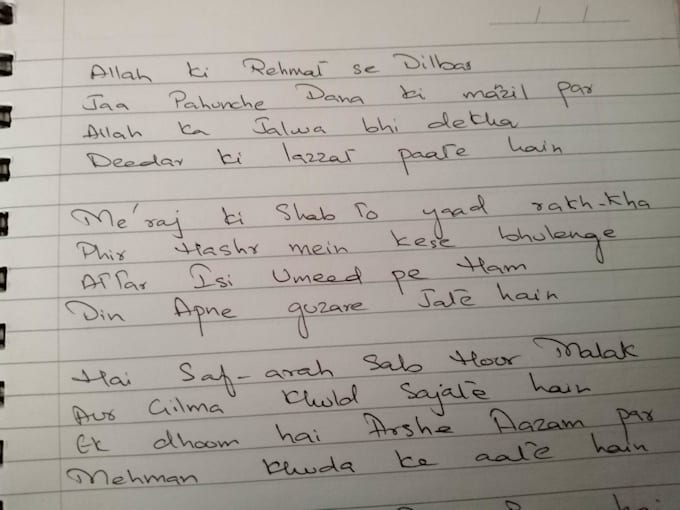 Allah ki Rehmat se Dilbar
Jaa Pahunche Dana ki mazil par
Allah ka Jalwa bhi dekha
Deedar ki lazzat paate hain
Me'raj ki Shab To yaad rakh-kha
Phir Hashr mein kese bhulenge
Attar Isi Umeed pe Ham
Din Apne guzare Jate hain
Hai Saf-arah Sab Hoor Malak
Aur Gilma Khuld Sajate hain
Ek dhoom hai Arshe Aazam par
Mehman Khuda ke aate hain